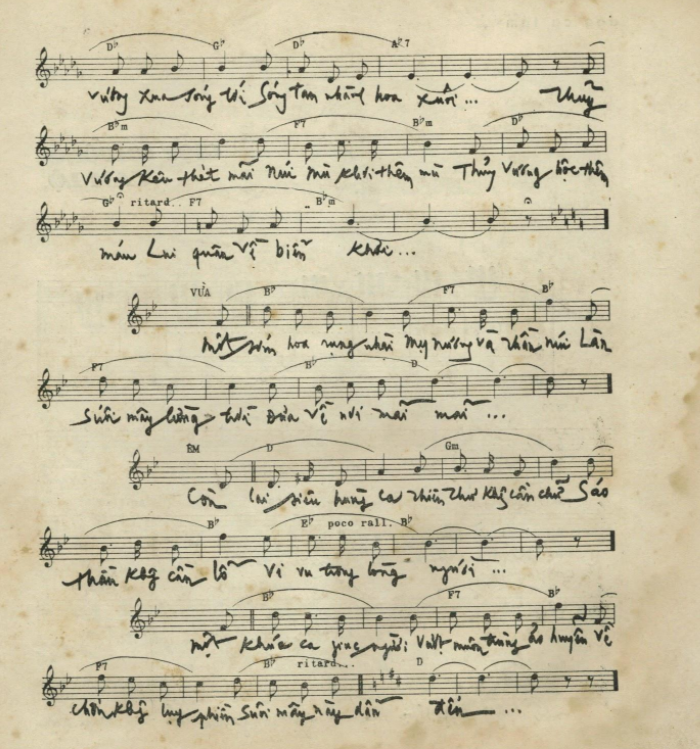 D♭ G♭ D♭ A♭7
Vương xua sóng tới Sóng tan nhành hoa xuôi... Thủy
B♭m F7 B♭m D♭
Vương kêu thét mãi Núi mù khơi thêm mù Thủy Vương hộc thêm
G♭ ritard.. F7 B♭m
máu Lui quân về biển khơi...
VỪA B♭ F7 B♭
Một sớm hoa rụng nhài Mỵ nương và Thần núi Lần
F7 B♭ D
Suối mây lưng trời Đưa về nơi mãi mãi ...
ÊM D Gm
Còn lại siêu hùng ca Thiên thư không cần chữ Sáo
B♭ E♭ poco rall. B♭
thần không cần lỗ Vi vu trong lòng người ...
B♭ F7 B♭
Một khúc ca giục người Vượt muôn trùng ảo huyền Về
F7 B♭ ritard... D
chốn không lụy phiền Suối mây này dẫn đến ...